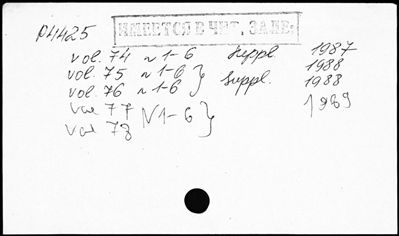 P4425
ИМЕЕТСЯ В ЧИТ. ЗАЛЕ.
vol. 74 n 1-6 Suppl. 1987
vol. 75 n 1-6 } 1988
vol. 76 n 1-6 } Suppl. 1988
vol 77 N 1-6 } 1989
vol 78